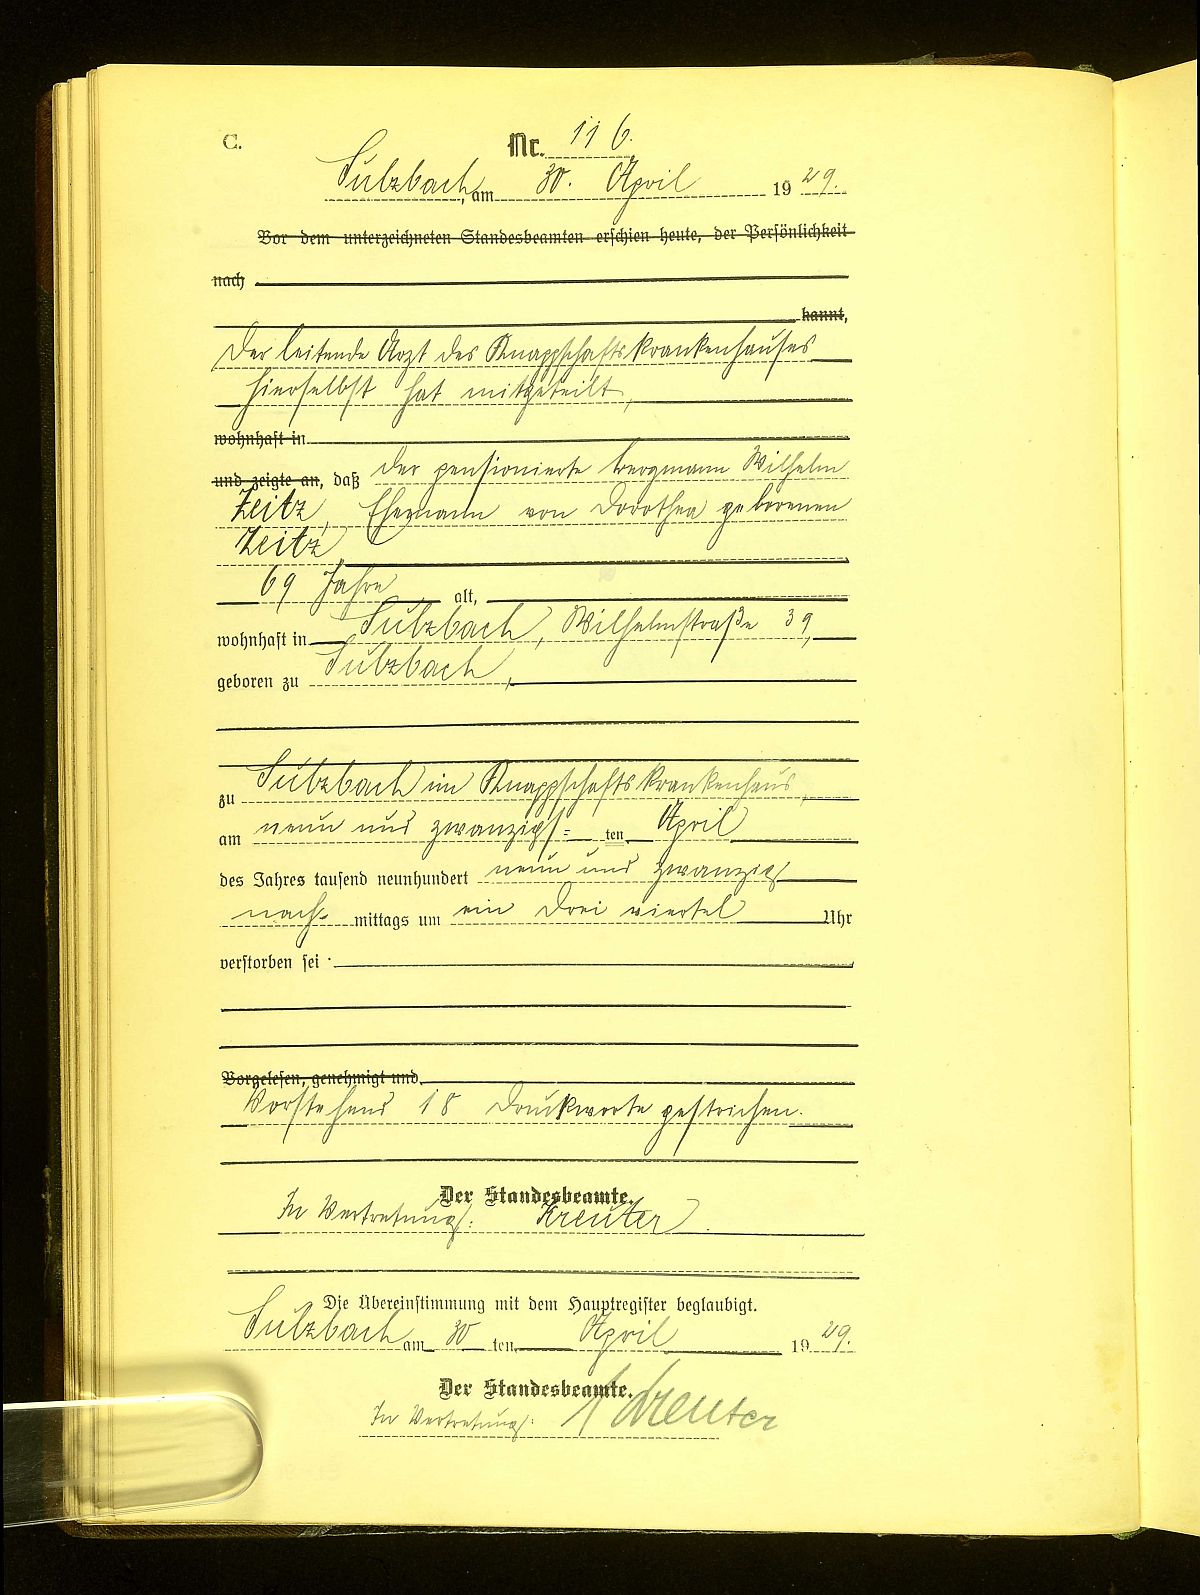 C.
Nr. 116.
Sulzbach, am 30. April 1929.
Vor dem unterzeichneten Standesbeamten erschien heute, der Persönlichkeit
nach
kannt,
Der leitende Arzt des Knappschaftskrankenhauses
hierselbst hat mitgeteilt,
wohnhaft in
und zeigte an, daß der pensionierte Bergmann Wilhelm
Zeitz, Ehemann von Dorothea geborenen
Zeitz
69 Jahre alt,
wohnhaft in Sulzbach, Wilhelmstraße 39,
geboren zu Sulzbach,
zu Sulzbach im Knappschaftskrankenhaus,
am neun und zwanzigs= ten April
des Jahres tausend neunhundert neun und zwanzig
nach= mittags um ein drei viertel Uhr
verstorben sei.
Vorgelesen, genehmigt und
Vorstehend 18 Druckworte gestrichen.
Der Standesbeamte.
In Vertretung: Kreuter.
Die Übereinstimmung mit dem Hauptregister beglaubigt.
Sulzbach am 30 ten April 1929.
Der Standesbeamte.
In Vertretung: Kreuter